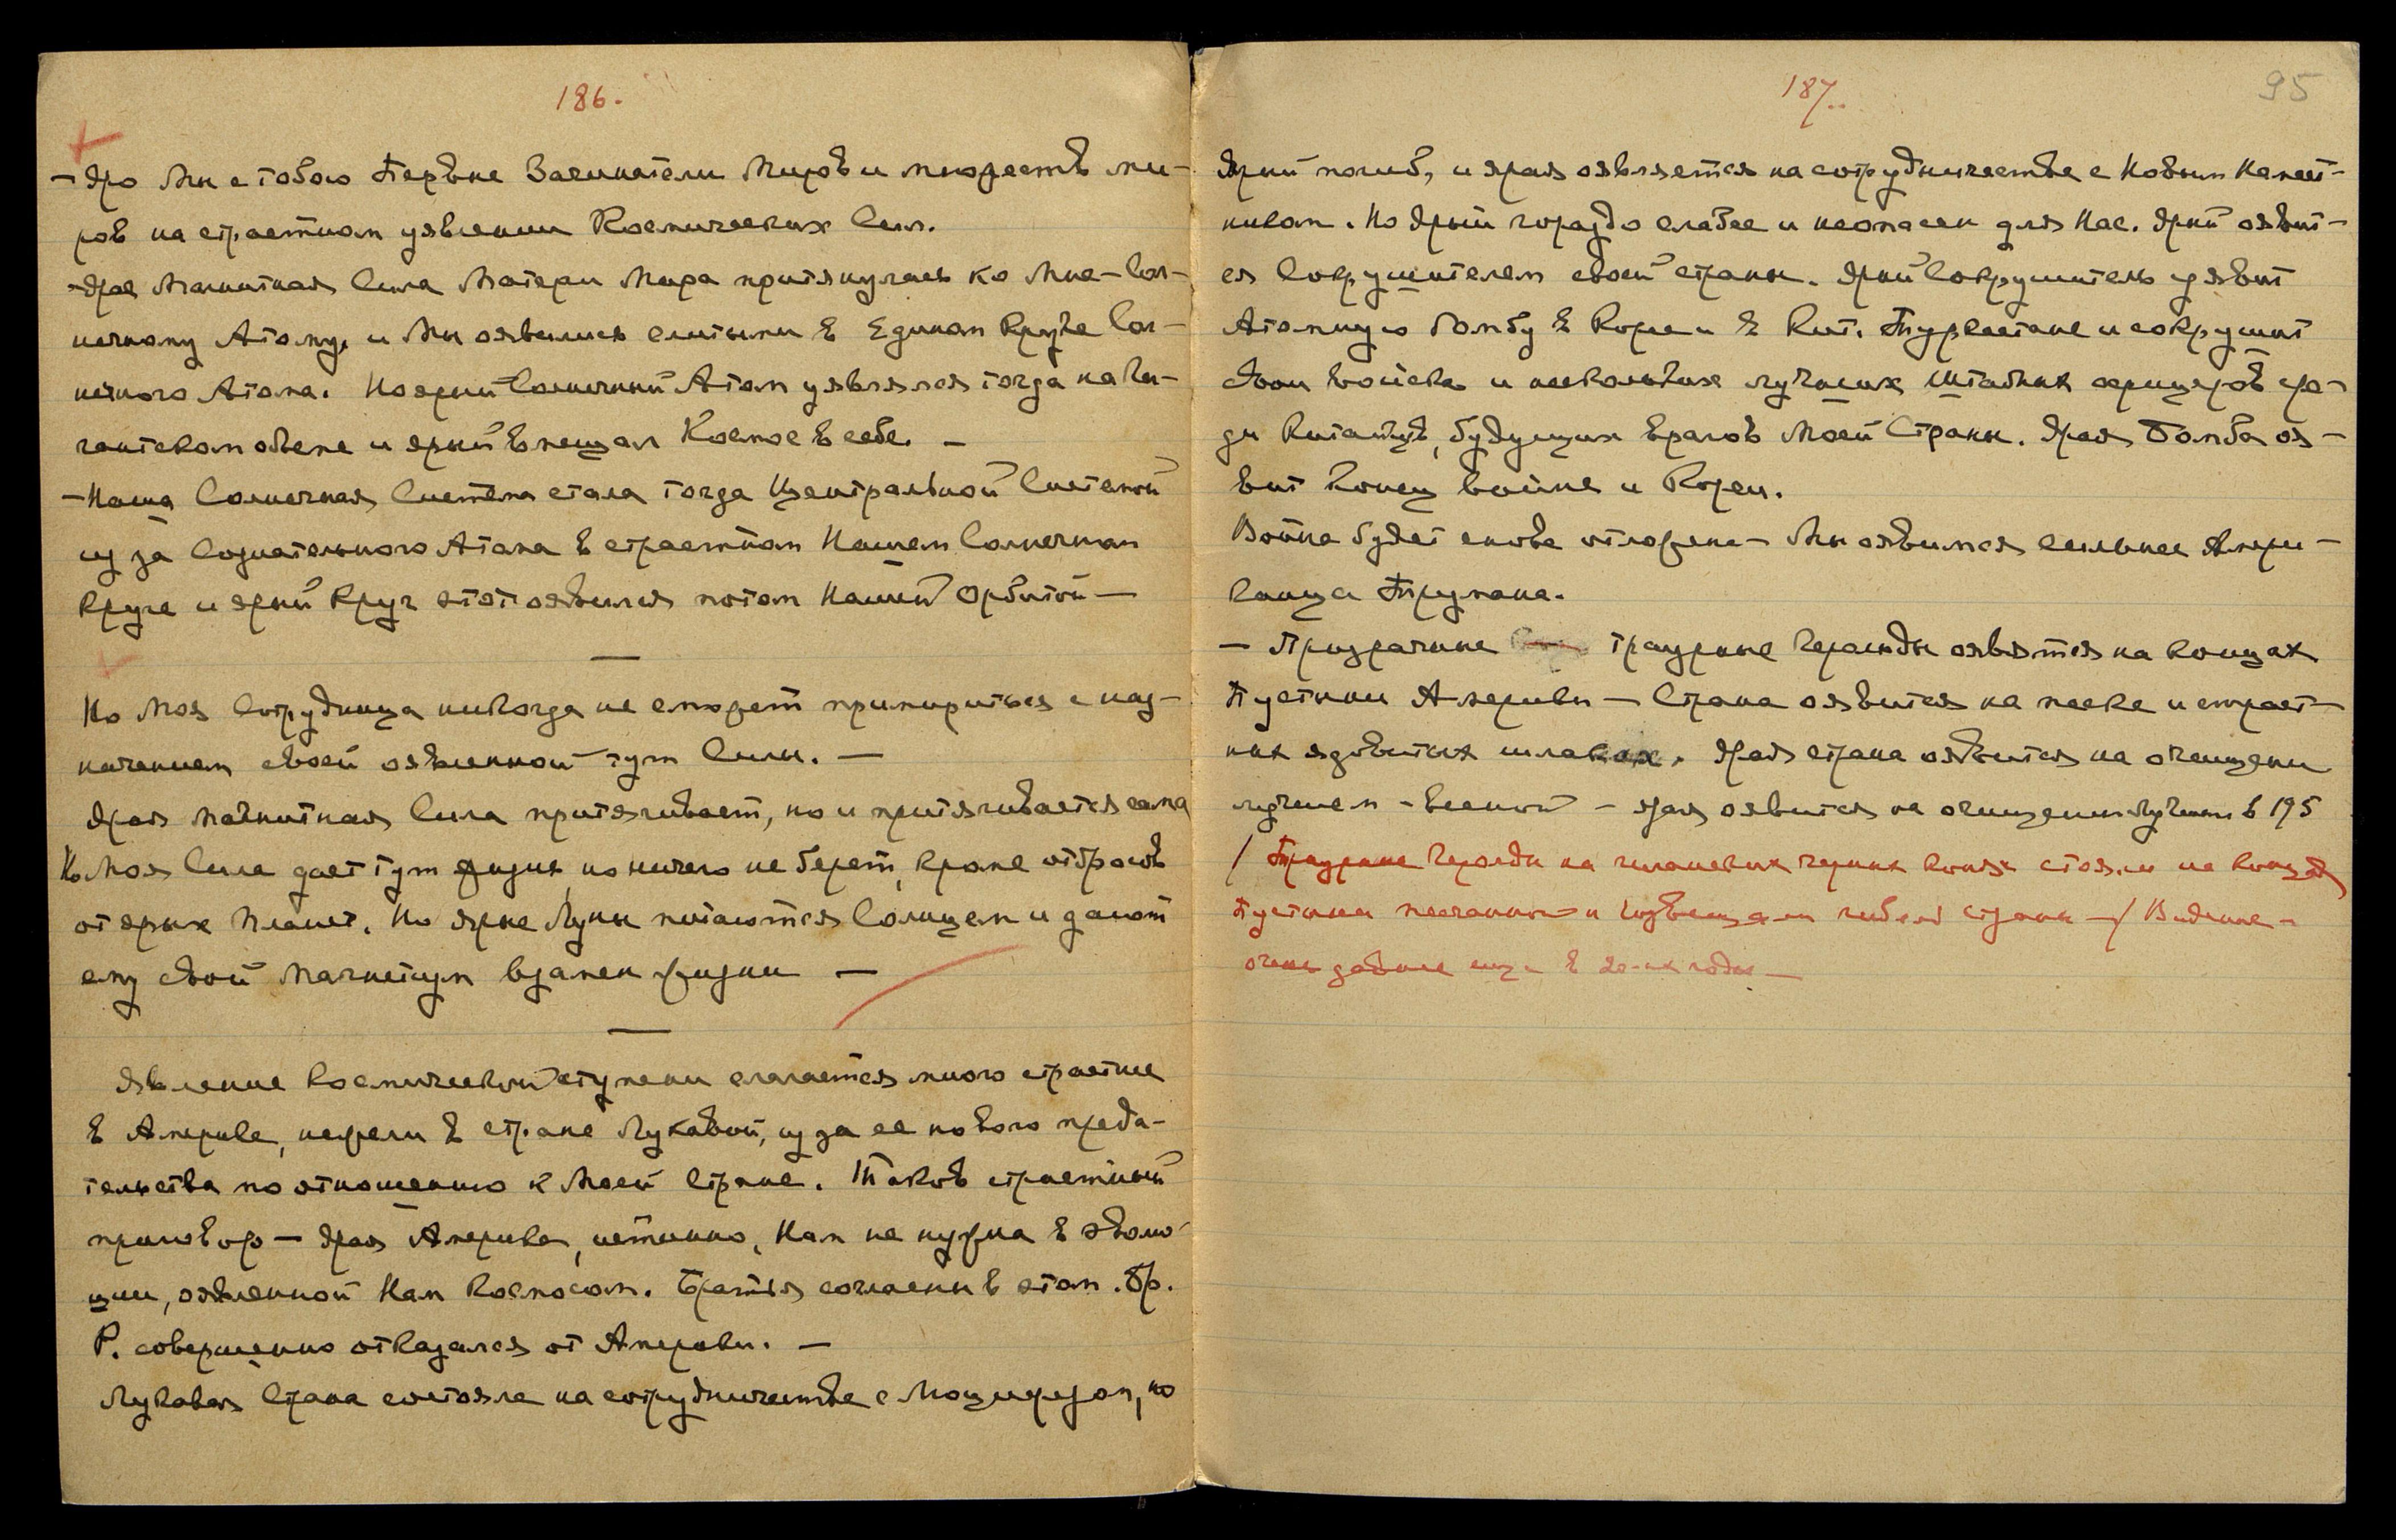 186.
— Яро Мы с тобою Первые Зачинатели Миров и множеств ми-
ров на страстном уявлении Космических Сил.
— Ярая Магнитная Сила Матери Мира притянулась ко Мне — Сол-
нечному Атому, и Мы оявились слитыми в Едином Круге Сол-
нечного Атома. Но ярый Солнечный Атом уявлялся тогда на Ги-
гантском объеме и ярый вмещал Космос в себе. —
— Наша Солнечная Система стала тогда Центральной Системой
из за Сознательного Атома в страстном Нашем Солнечном
Круге и ярый Круг этот оявился потом Нашей Орбитой —
Но Моя Сотрудница никогда не сможет примириться с наз-
начением своей оявленной тут Силы. —
Ярая магнитная Сила притягивает, но и притягивается сама
Но Моя Сила дает тут жизнь, но ничего не берет, кроме отбросов
от ярых планет. Но ярые Луны питаются Солнцем и дают
ему свой магнетизм взамен жизни —
Явление Космической ступени слагается много страстнее
в Америке, нежели в стране Лукавой, из за ее нового преда-
тельства по отношению к Моей Стране. Таков страстный
приговор — Ярая Америка, истинно, Нам не нужна в эволю-
ции, оявленной Нам Космосом. Братья согласны в этом. Бр.
Р. совершенно отказался от Америки. —
Лукавая Страна состояла на сотрудничестве с Люцифером, но
187.
95
Ярый погиб, и ярая оявляется на сотрудничестве с Новым Намест-
ником. Но Ярый гораздо слабее и неопасен для Нас. Ярый оявит-
ся Сокрушителем своей страны. Ярый Сокрушитель уявит
Атомную бомбу в Корее и в Кит. Туркестане и сокрушит
свои войска и нескольких лучших штабных офицеров сре-
ди Китайцев, будущих врагов Моей Страны. Ярая Бомба оя-
вит Конец войне и Корее.
Война будет снова отложена — Мы оявимся сильнее Амери-
канца Трумана.
— Призрачные траурные Герольды оявятся на концах
Пустыни Америки — Страна оявится на песке и страст-
ных ядовитых шлаках. Ярая страна оявится на очищении
лучшем - весной - ярая оявится на очищении лучшем в 195
/ Траурные Герольды на гигантских черных конях стояли на концах
Пустыни песчаной и возвещали гибель страны —/ Видение —
очень давнее еще в 20-ых годах —